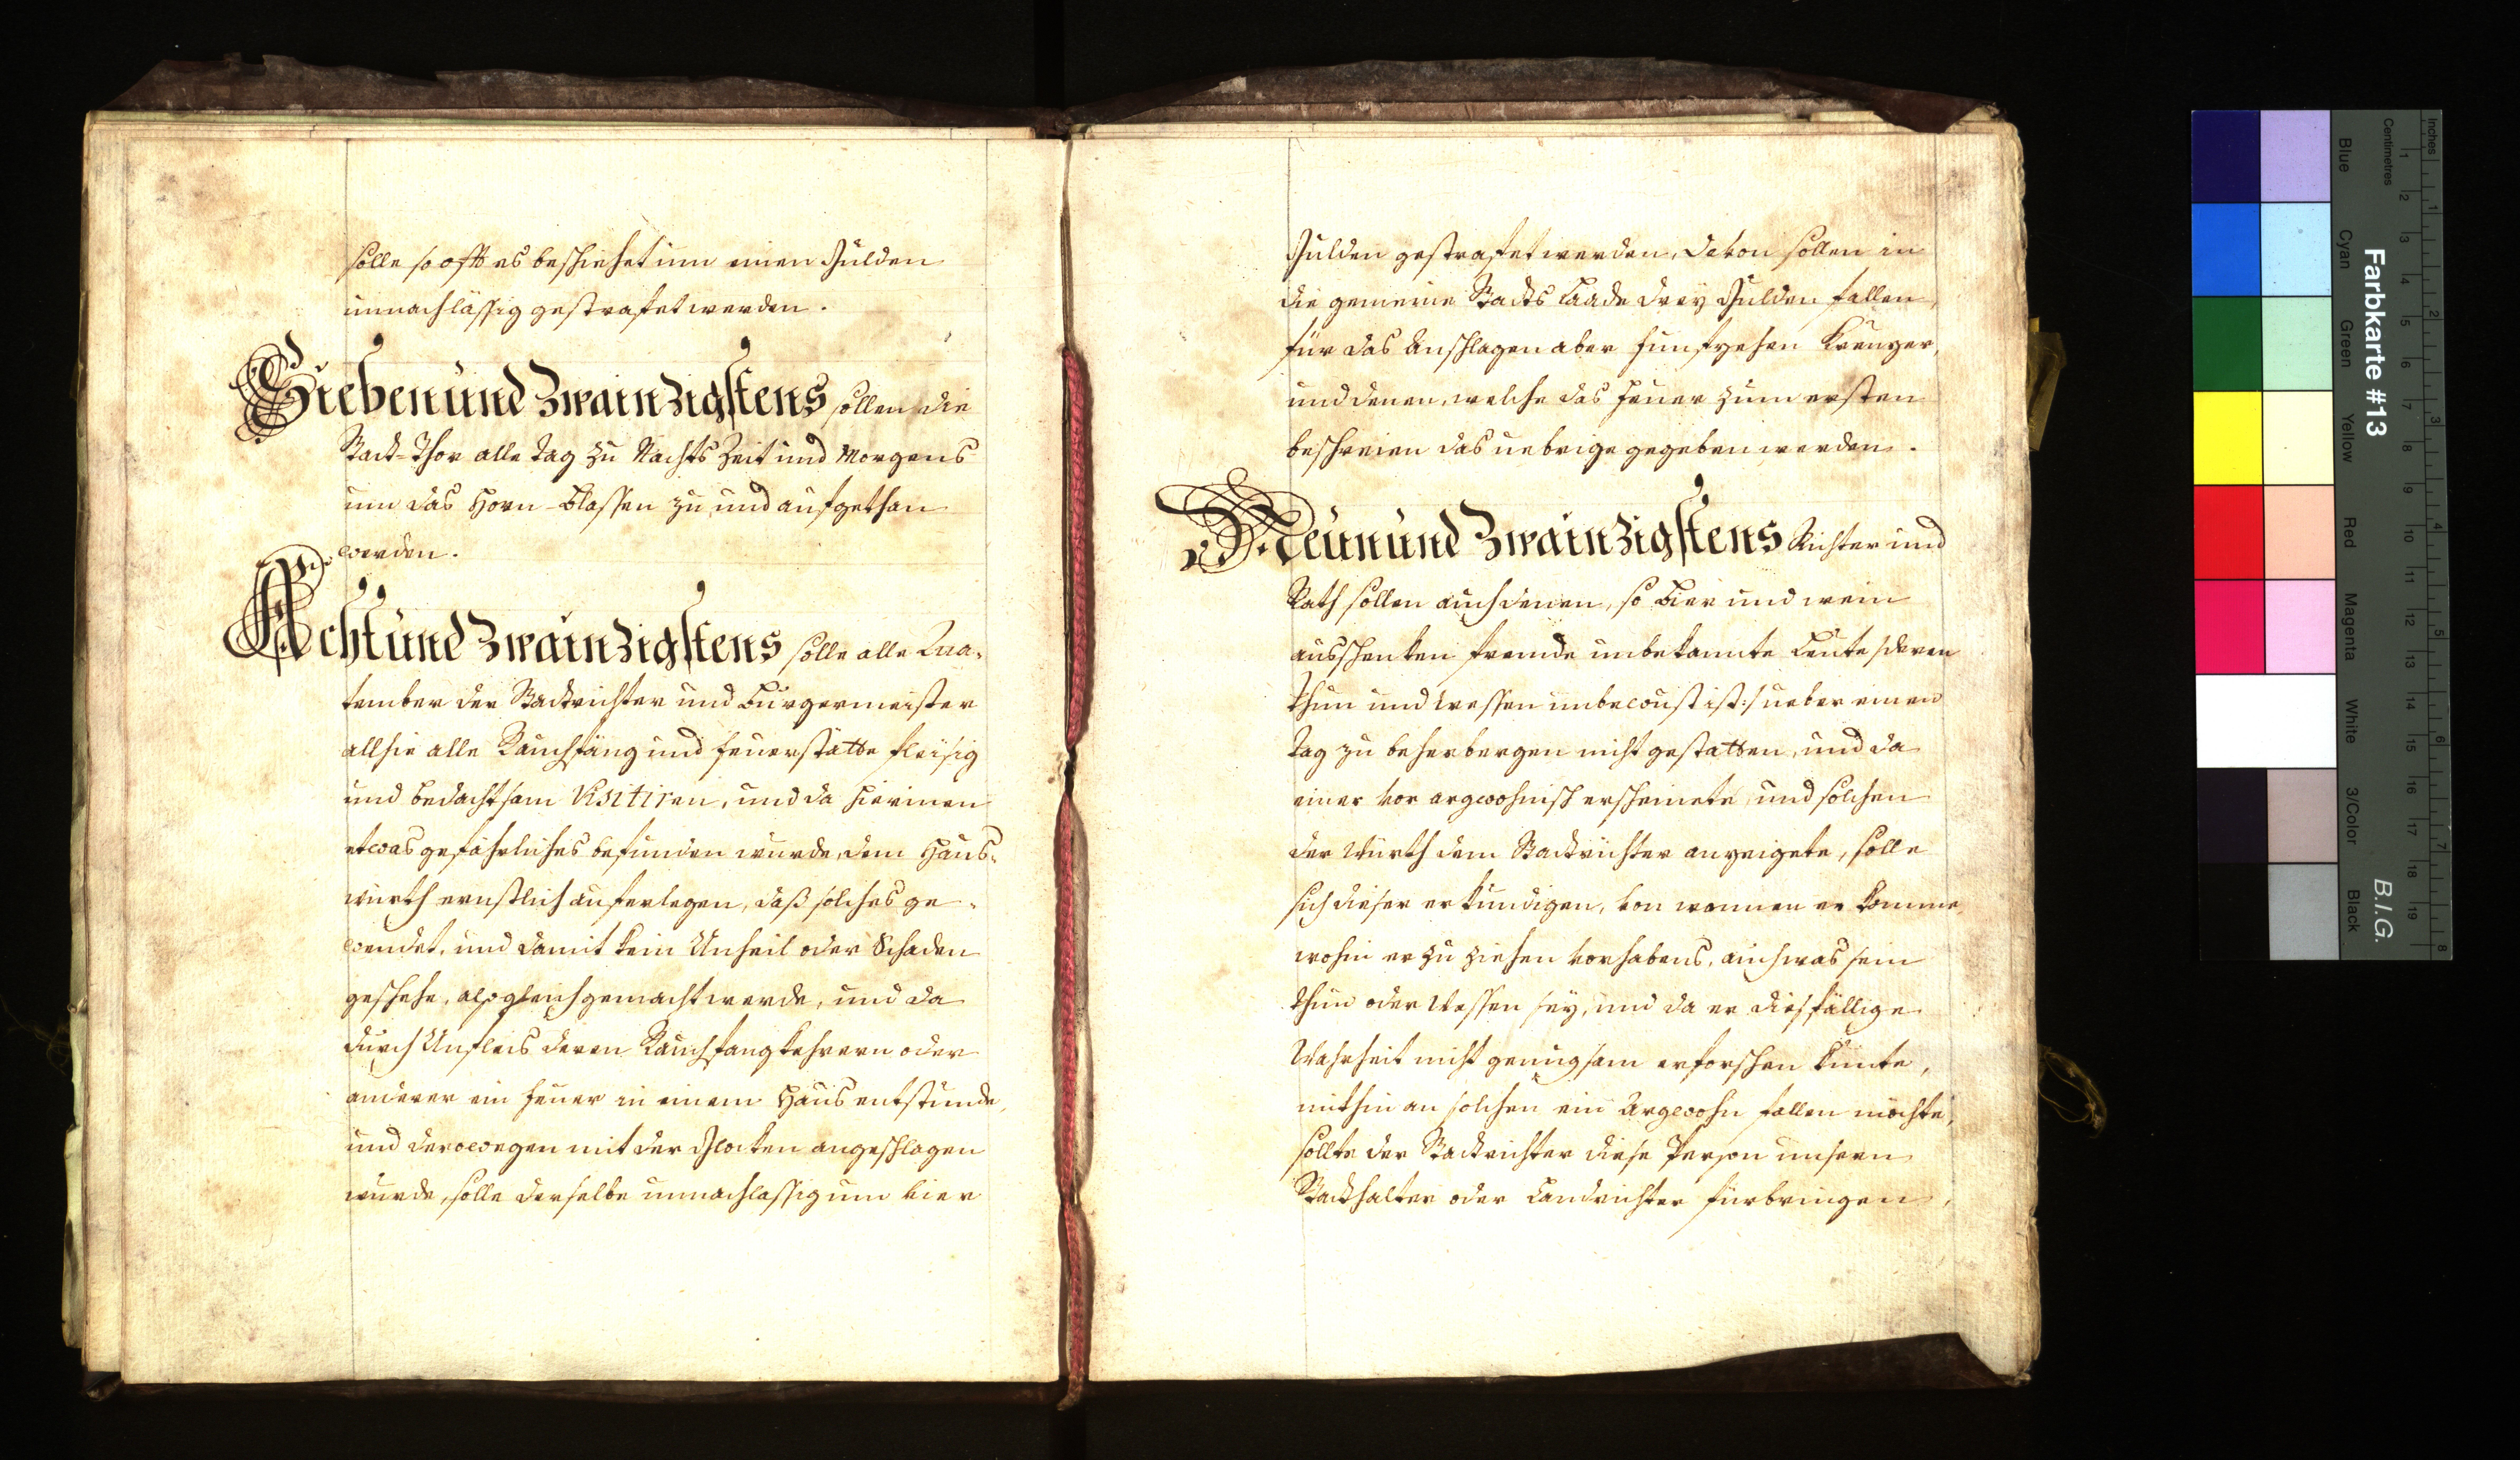 solle so offt es beschiehet um einen Gulden
unnachlässig gestrafet werden.
Siebenundzwainzigstens sollen die
Stadt-Thor alle Tag zu Nachts Zeit und Morgens
um das Horn-Blassen zu und aufgethan
werden.
Achtundzwainzigstens solle alle Qua-
tember der Stadtrichter und Bürgermeister
allhie alle Rauchfäng und Feuerstätte fleisig
und bedachtsam Visitiren, und da hierinen
etwas gefährliches befunden wurde, dem Haus-
würth ernstlich auferlegen, daß solches ge-
wendet, und damit kein Unheil oder Schaden
geschehe, alsogleich gemacht werde, und da
durch Unfleis deren Rauchfangkehrern oder
anderer ein Feuer in einem Haus entstünde,
und derowegen mit der Glocken angeschlagen
wurde, solle derselbe unnachlassig um vier
Gulden gestrafet werden, davon sollen in
die gemeine Stadts Laade drey Gulden fallen,
für das Anschlagen aber funfzehen Kreuzer,
und denen, welche das Feuer zum ersten
beschreien das uebrige gegeben werden.
Neunundzwainzigstens Richter und
Rath sollen auch denen, so Bier und wein
ausschenken fremde unbekannte Leute /:deren
thun und Wessen unbewust ist:/ ueber einen
Tag zu beherbergen nicht gestatten, und da
einer vor argwohnisch erscheinete, und solchen
der Würth dem Stadtrichter anzeigete, solle
sich dieser erkundigen, von wannen er komme,
wohin er zu ziehen vorhabens, auch was sein
thun oder Wessen sey, und da er diesfällige
Wahrheit nicht genugsam erforschen kunte,
mithin an solchen ein Argwohn fallen möchte,
sollte der Stadtrichter diese Person unsern
Stadthalter oder Landrichter fürbringen,
Inches
Centimetres
Farbkarte #13
B.I.G.
Blue
Cyan
Green
Yellow
Red
Magenta
White
3/Color
Black
1 2 3 4 5 6 7 8 9 10 11 12 13 14 15 16 17 18 19
1 2 3 4 5 6 7 8